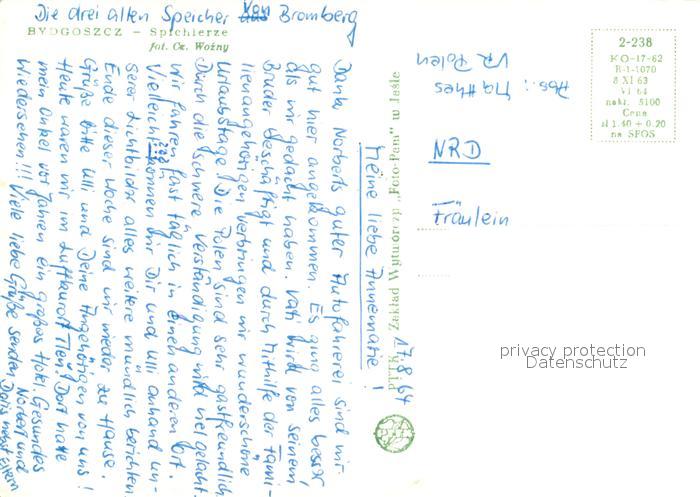 Die drei alten Speicher von Bromberg
BYDGOSZCZ – Spichlerze
fot. Cz. Woźny
17.8.64
Meine liebe Annemarie!
Dank Norberts guter Autofahrerei sind wir
gut hier angekommen. Es ging alles besser,
als wir gedacht haben. Vati wird von seinem
Bruder beschäftigt und durch Mithilfe der Fami-
lienangehörigen verbringen wir wunderschöne
Urlaubstage. Die Polen sind sehr gastfreundlich.
Durch die schwere Verständigung wird viel gelacht.
Wir fahren fast täglich in einen anderen Ort.
Vielleicht können wir Dir und Ulli anhand un-
serer Lichtbilder alles weitere mündlich berichten
Ende dieser Woche sind wir wieder zu Hause.
Grüße bitte Ulli und Deine Angehörigen von uns!
Heute waren wir im Luftkurort Tleń. Dort hatte
mein Onkel vor Jahren ein großes Hotel. Gesundes
Wiedersehen!!! Viele liebe Grüße senden Norbert und
Doris nebst Eltern
PTTK Zakład Wytwórczy "Foto-Pam" w Jaśle
Abs.: Matthes
VR Polen
2-238
KO-17-62
R-1-1070
8 XI 63
VI 64
nakł. 5100
Cena
zł 1.40 + 0.20
na SFOS
NRD
Fräulein
privacy protection
Datenschutz